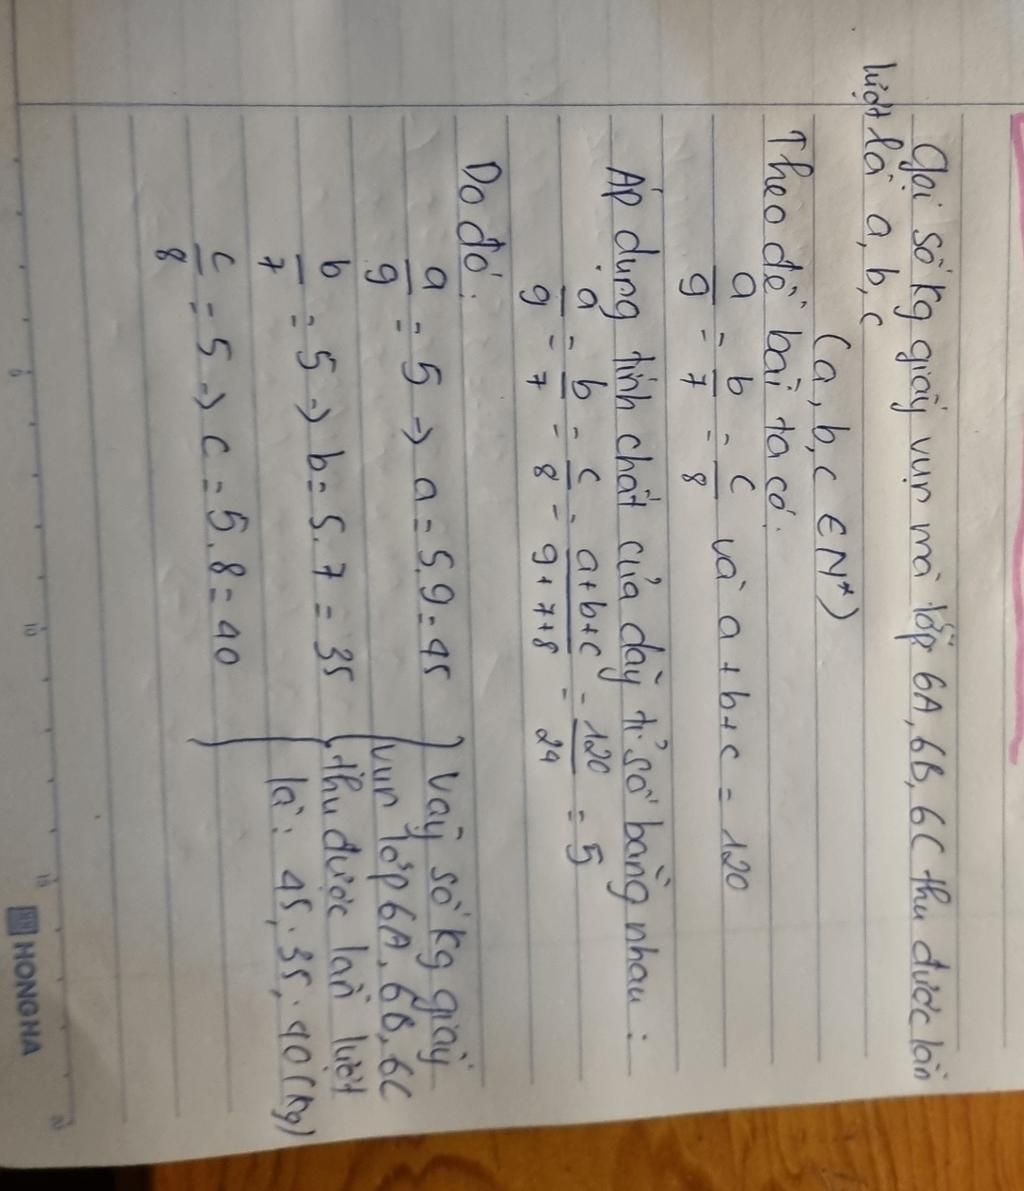 Gọi số kg giấy vụn mà lớp 6A, 6B, 6C thu được lần
lượt là a, b, c
(a, b, c ∈ N*)
Theo đề bài ta có:
a/9 = b/7 = c/8 và a + b + c = 120
Áp dụng tính chất của dãy tỉ số bằng nhau:
a/9 = b/7 = c/8 = a+b+c/9+7+8 = 120/24 = 5
Do đó:
a/9 = 5 => a = 5.9 = 45
b/7 = 5 => b = 5.7 = 35
c/8 = 5 => c = 5.8 = 40
Vậy số kg giấy
vụn lớp 6A, 6B, 6C
thu được lần lượt
là: 45, 35, 40 (kg)
5
10
15
20
HONG HA